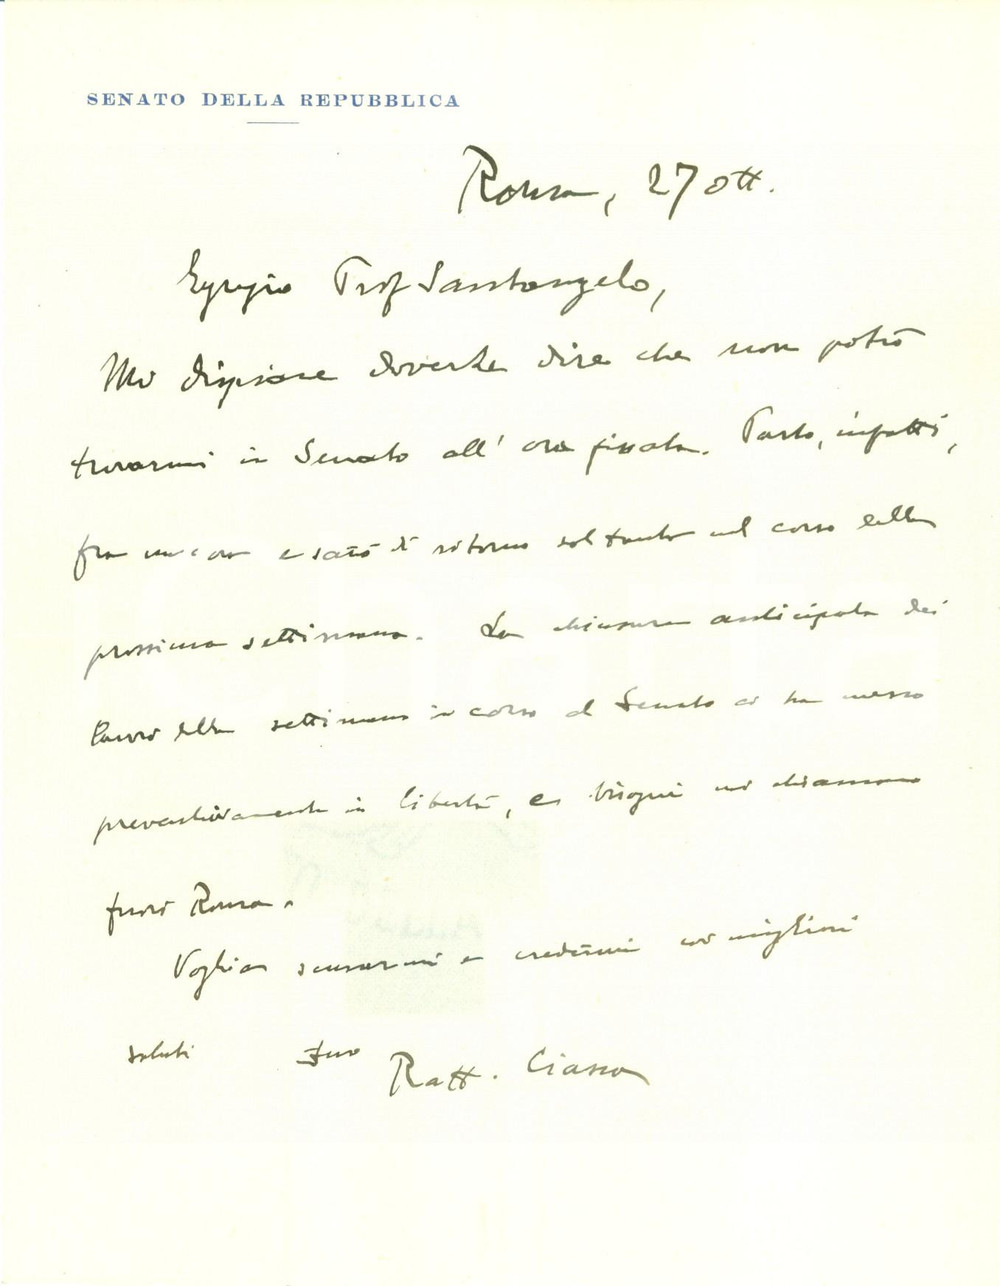 SENATO DELLA REPUBBLICA
Roma, 27 ott.
Egregio Prof Santangelo,
Mi dispiace doverLe dire che non potrò
trovarmi in Senato all' ora fissata. Parto, infatti,
fra un' ora e sarò di ritorno soltanto nel corso della
prossima settimana. La chiusura anticipata dei
lavori della settimana in corso al Senato ci ha messo
in libertà, e bisogni mi chiamano
fuori Roma.
Voglia scusarmi e credermi coi migliori
saluti Suo Raff. Ciasca